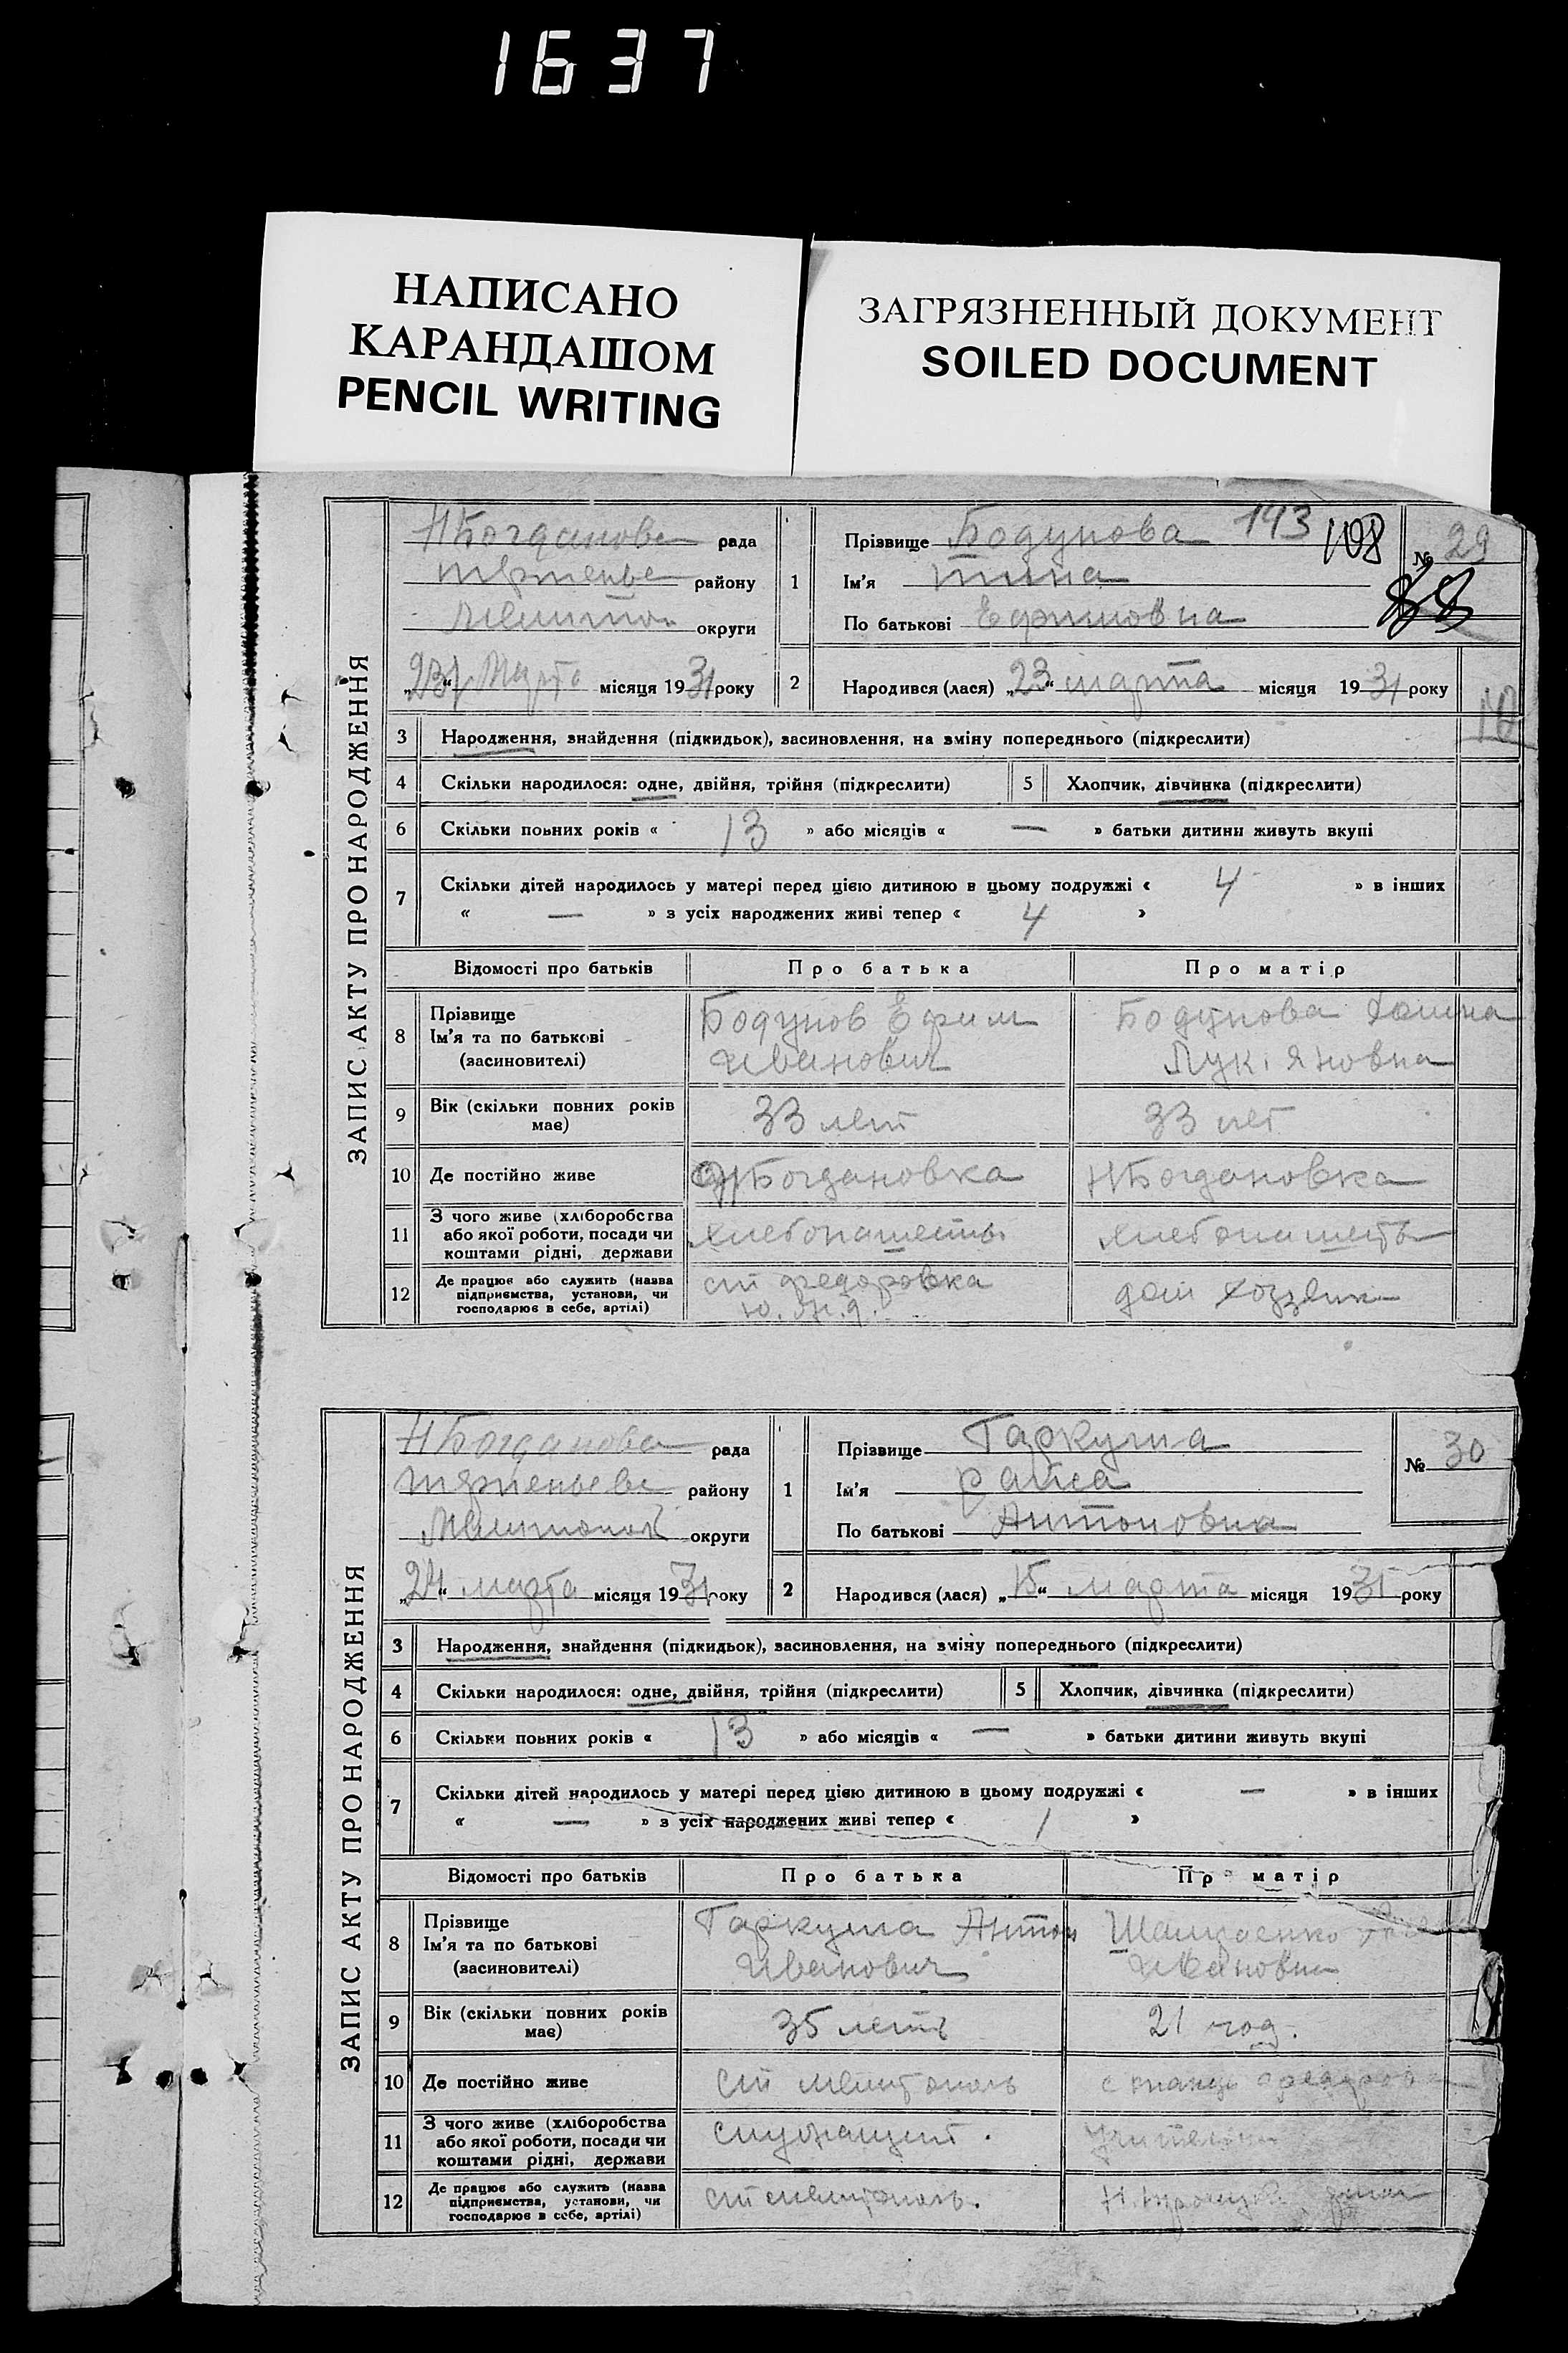 1637
НАПИСАНО
КАРАНДАШОМ
PENCIL WRITING
ЗАГРЯЗНЕННЫЙ ДОКУМЕНТ
SOILED DOCUMENT
ЗАПИС АКТУ ПРО НАРОДЖЕННЯ
НБогданове рада
району
Мелитоп округи
„23“ Марта місяця 1931 року
1 Прізвище Бодунова 193 108
№ 29
88
Ім'я
По батькові Ефимовна
2 Народився (лася) „23“ марта місяця 1931 року
3 Народження, знайдення (підкидьок), засиновлення, на зміну попереднього (підкреслити)
4 Скільки народилося: одне, двійня, трійня (підкреслити) 5 Хлопчик, дівчинка (підкреслити)
6 Скільки повних років « 13 » або місяців « — » батьки дитини живуть вкупі
7 Скільки дітей народилось у матері перед цією дитиною в цьому подружжі « 4 » в інших
« — » з усіх народжених живі тепер « 4 »
Відомості про батьків Про батька Про матір
8 Прізвище Ім'я та по батькові (засиновителі)
Бодунов Ефим Иванович
Бодунова Лук'яновна
9 Вік (скільки повних років має) 33 лет 33 лет
10 Де постійно живе НБогдановка НБогдановка
11 З чого живе (хліборобства або якої роботи, посади чи коштами рідні, держави
12 Де працює або служить (назва підприємства, установи, чи господарює в себе, артілі)
ст федоровка
ю. ж. д.
дом
ЗАПИС АКТУ ПРО НАРОДЖЕННЯ
НБогданове рада
району
Мелитопол округи
„24“ марта місяця 1931 року
1 Прізвище Гаркуша
№ 30
Ім'я Раиса
По батькові Антоновна
2 Народився (лася) „15“ марта місяця 1931 року
3 Народження, знайдення (підкидьок), засиновлення, на зміну попереднього (підкреслити)
4 Скільки народилося: одне, двійня, трійня (підкреслити) 5 Хлопчик, дівчинка (підкреслити)
6 Скільки повних років « 13 » або місяців « — » батьки дитини живуть вкупі
7 Скільки дітей народилось у матері перед цією дитиною в цьому подружжі « — » в інших
« — » з усіх народжених живі тепер « 1 »
Відомості про батьків Про батька Пр матір
8 Прізвище Ім'я та по батькові (засиновителі)
Гаркуша Антон Иванович
Ивановна
9 Вік (скільки повних років має) 35 леть 21 год.
10 Де постійно живе ст мелитополь
11 З чого живе (хліборобства або якої роботи, посади чи коштами рідні, держави
служащий.
12 Де працює або служить (назва підприємства, установи, чи господарює в себе, артілі)
ст мелитополь.